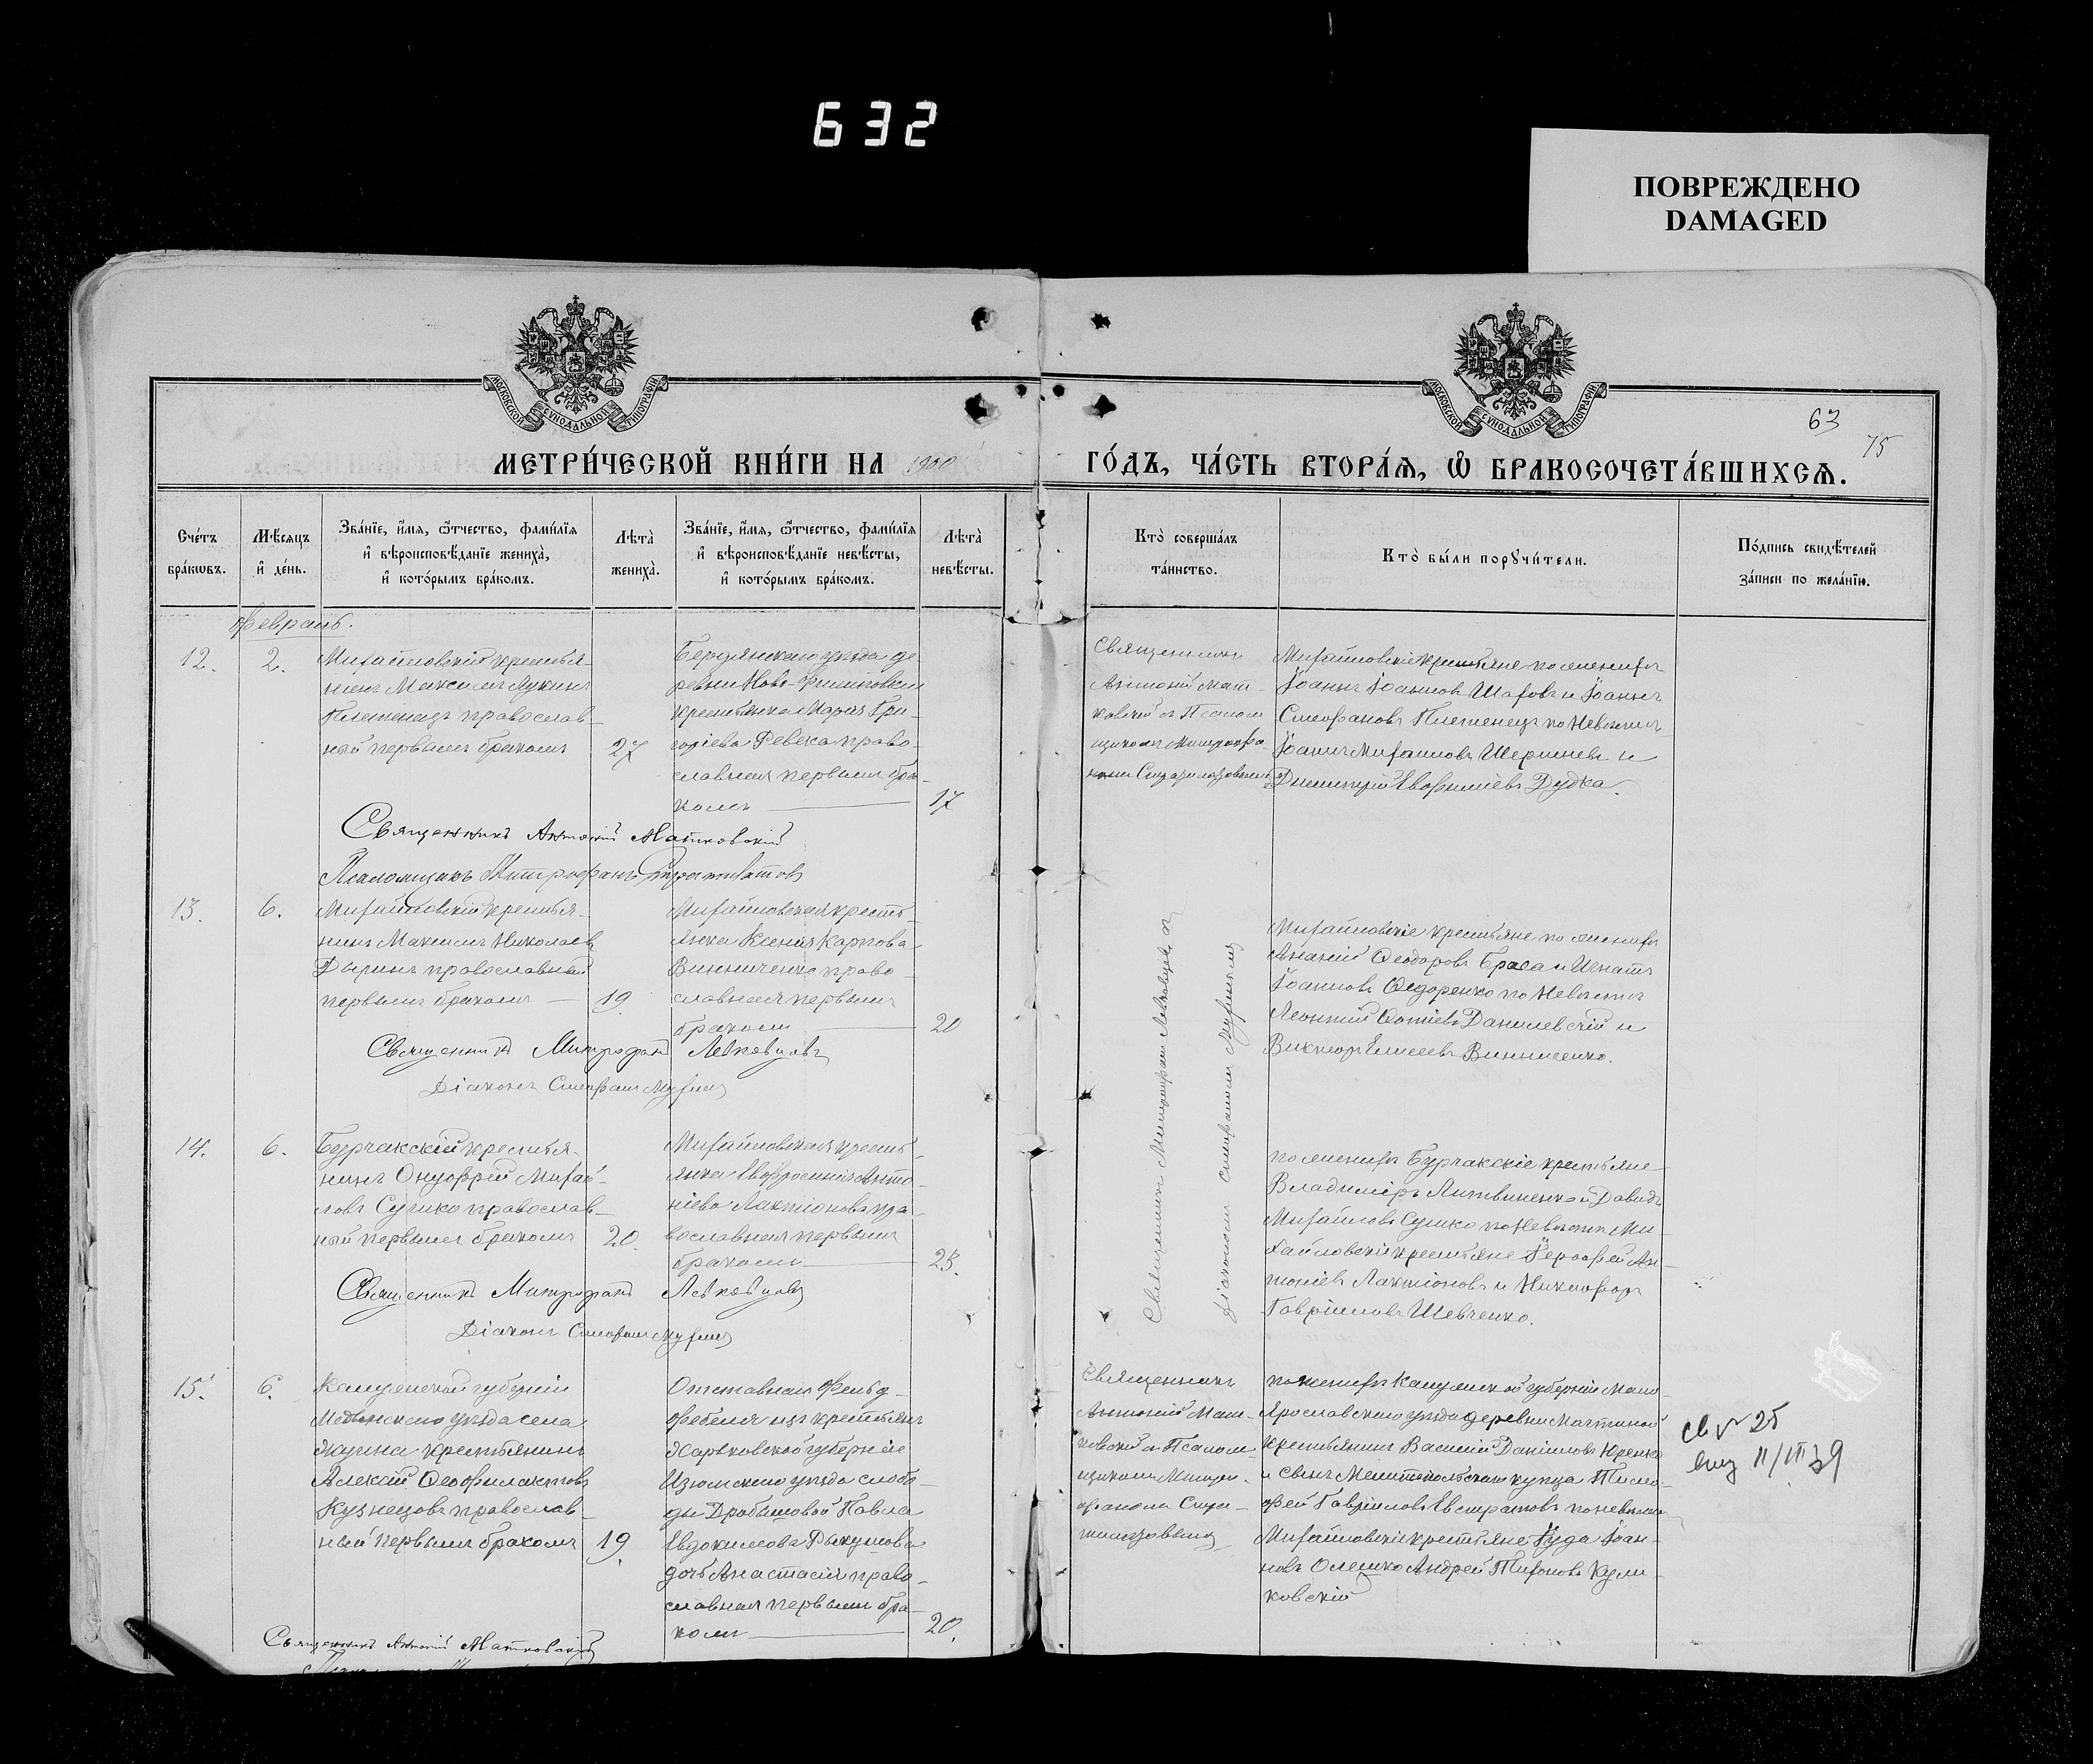 632
ПОВРЕЖДЕНО
DAMAGED
МОСКОВСКОЙ СѴНОДАЛЬНОЙ ТИПОГРАФІИ
МОСКОВСКОЙ СѴНОДАЛЬНОЙ ТИПОГРАФІИ
63
75
МЕТРИ́ЧЕСКОЙ КНИ́ГИ НА 1900
ГО́ДЪ, ЧА́СТЬ ВТОРА́Ѧ, Ѡ҆ БРАКОСОЧЕТА́ВШИХСѦ.
Сче́тъ
бра́кωвъ.
Мѣ́сѧцъ
и҆ де́нь.
Зва́нїе, и҆́мѧ, ѻ҆́тчество, фами́лїѧ
и҆ вѣроисповѣ́данїе жениха̀,
и҆ кото́рымъ бра́комъ.
Лѣта̀
жениха̀.
Зва́нїе, и҆́мѧ, ѻ҆́тчество, фами́лїѧ
и҆ вѣроисповѣ́данїе невѣ́сты,
и҆ кото́рымъ бра́комъ.
Лѣта̀
невѣ́сты.
Кто̀ соверша́лъ
та́инство.
Кто̀ бы́ли порꙋчи́тели.
По́дпись свидѣ́телей
за́писи по жела́нїю.
Февраль.
12.
2.
Михайловскій крестья-
нинъ Максимъ Лукинъ
Плетенецъ православ-
ный первымъ бракомъ
27
Бердянскаго уѣзда де
ревни Ново-
крестьянка Марія Гри-
горіева Ревека право-
славная первымъ бра-
комъ
17
Священникъ
Антоній Мат-
ковскій съ Псалом
щикомъ Митрофа-
Михайловскіе крестьяне по женихѣ
Іоаннъ Іоанновъ Шаховъ и Іоаннъ
Стефановъ Плетенецъ по невѣстѣ
Іоаннъ Михаиловъ Шершневъ и
Димитрій Евфиміевъ Дудка.
Священникъ Антоній Матковскій
Псаломщикъ Митрофанъ
13.
6.
Михайловскій крестья-
нинъ Максимъ Николаевъ
Дыринъ православный
первымъ бракомъ
19.
Михайловская кресть-
янка Ксенія Карпова
Винниченко право-
славная первымъ
бракомъ
20
Михайловскіе крестьяне по женихѣ
Ананій Ѳеодоровъ и Игнатъ
Іоанновъ Ѳедоренко по невѣстѣ
Леонтій Ѳотіевъ Данилевскій и
Викторъ Елисеевъ Винниченко.
Священникъ Митрофанъ Левковцовъ
Діаконъ Стефанъ Мухинъ
Священникъ Митрофанъ Левковцевъ съ
Діакономъ Стефаномъ Мухинымъ
14.
6.
Бурчакскій крестья-
нинъ Онуфрій Михай-
ловъ Сушко православ-
ный первымъ бракомъ
20.
Михайловская кресть-
янка Евфросинія Анто-
ніева Лактіонова пра-
вославная первымъ
бракомъ
23.
по женихѣ Бурчакскіе крестьяне
Владиміръ Литвиненко и Давидъ
Михайловъ Сушко по невѣстѣ Ми-
хайловскіе крестьяне Іероѳей Ан-
тоніевъ Лактіоновъ и Никифоръ
Гавріиловъ Шевченко.
Священникъ Митрофанъ Левковцовъ
Діаконъ Стефанъ Мухинъ
15.
6.
Калужской губерніи
Медынскаго уѣзда села
крестьянинъ
Алексій Ѳеофилактовъ
Кузнецовъ православ-
ный первымъ бракомъ
19.
Отставнаго Фельд-
фебеля изъ крестьянъ
Харьковской губерніи
Изюмскаго уѣзда слобо-
ды Дробышовой Павла
Евдокимова Рыкунова
дочь Анастасія право-
славная первымъ бра-
комъ
20.
Священникъ
Антоній Мат-
ковскій съ Псалом
щикомъ Митро-
фаномъ
по женихѣ Калужской губерніи Мало-
Ярославскаго уѣзда деревни
крестьянинъ Василій Даніиловъ
и сынъ Мелитопольскаго купца Тимо-
фей Гавріиловъ Евстратовъ по невѣстѣ
Михайловскіе крестьяне Іуда Іоан-
новъ Олешко Андрей Тихоновъ Кули-
ковскій
25
11/III 39
Священникъ Антоній Матковскій